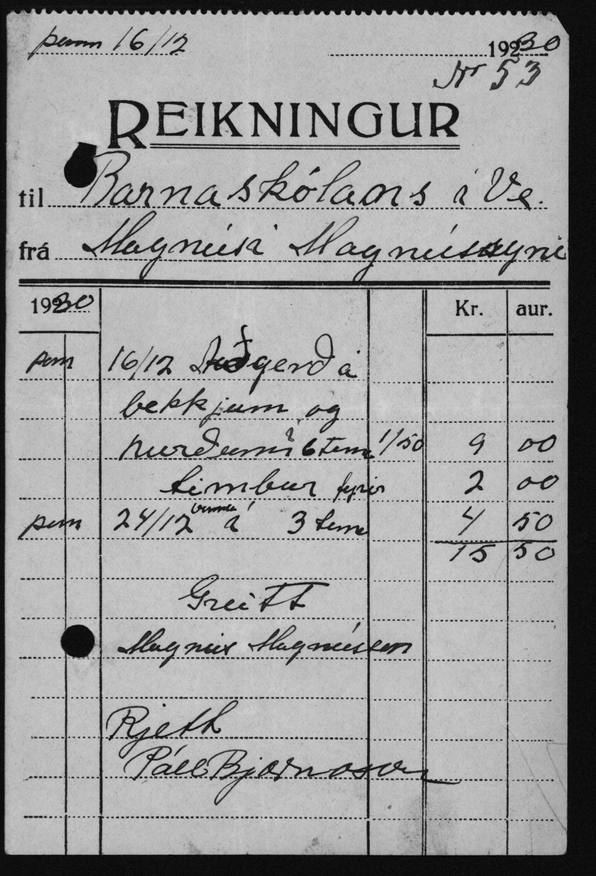 þann 16/12 1930
Nr 53
REIKNINGUR
til Barnaskólans í Ve.
frá Magnúsi Magnússyni
1930 Kr. aur.
þann 16/12 gerð á
bekkjum og
hurðum í 6 tíma 1/50 9 00
timbur fyrir 2 00
þann 24/12 vinna í 3 tíma 4 50
15 50
Greitt
Magnús Magnússon
Rjett
Páll Bjarnason